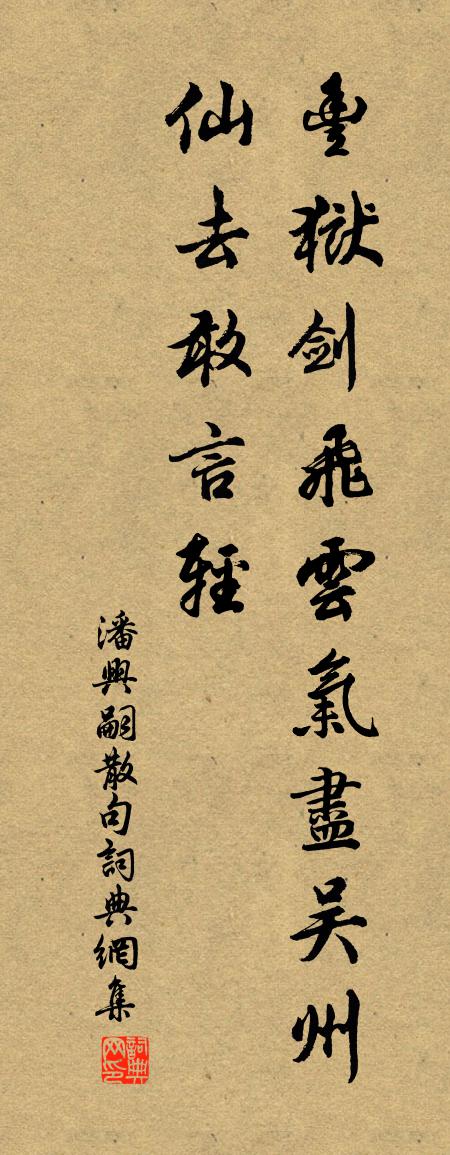 豐獄劍飛雲氣盡吳州
仙去敢言輕
潘興嗣散句詞典網集
詞典网印